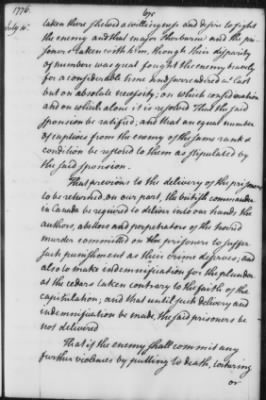 1776.
July 10.
taken there shewed a willingness and desire to fight
the enemy and that major Sherburne and the pri-
soners taken with him, though their disparity
of numbers was great fought the enemy bravely
for a considerable time and surrendered at last
but on absolute necessity; on which consideration
and on which alone it is resolved That the said
sponsion be ratified; and that an equal number
of captives from the enemy of the same rank &
condition be restored to them as stipulated by
the said sponsion.
That previous to the delivery of the prisoners
to be returned on our part, the british commander
in Canada be required to deliver into our hands the
authors, abettors and perpetrators of the horrid
murder committed on the prisoners to suffer
such punishment as their crime deserves; and
also to make indemnification for the plunder
at the cedars taken contrary to the faith of the
capitulation; and that until such delivery and
indemnification be made, the said prisoners be
not delivered
That if the enemy shall commit any
further violences by putting to death, torturing
or